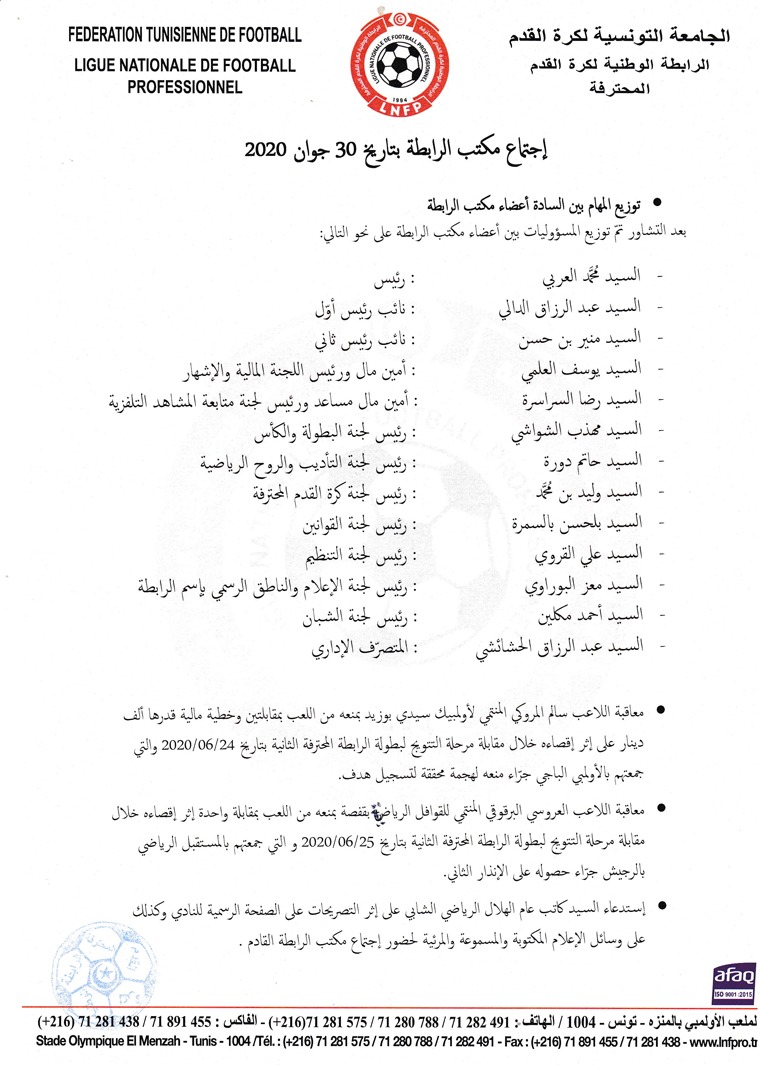 FEDERATION TUNISIENNE DE FOOTBALL
LIGUE NATIONALE DE FOOTBALL
PROFESSIONNEL
LIGUE NATIONALE DE FOOTBALL PROFESSIONNEL
1994
LNFP
الجامعة التونسية لكرة القدم
الرابطة الوطنية لكرة القدم
المحترفة
إجتماع مكتب الرابطة بتاريخ 30 جوان 2020
• توزيع المهام بين السادة أعضاء مكتب الرابطة
بعد التشاور تمّ توزيع المسؤوليات بين أعضاء مكتب الرابطة على نحو التالي:
- السيد محمّد العربي : رئيس
- السيد عبد الرزاق الدالي : نائب رئيس أوّل
- السيد منير بن حسن : نائب رئيس ثاني
- السيد يوسف العلمي : أمين مال ورئيس اللجنة المالية والإشهار
- السيد رضا السراسرة : أمين مال مساعد ورئيس لجنة متابعة المشاهد التلفزية
- السيد مهذب الشواشي : رئيس لجنة البطولة والكأس
- السيد حاتم دورة : رئيس لجنة التأديب والروح الرياضية
- السيد وليد بن محمّد : رئيس لجنة كرة القدم المحترفة
- السيد بلحسن بالسمرة : رئيس لجنة القوانين
- السيد علي القروي : رئيس لجنة التنظيم
- السيد معز البوراوي : رئيس لجنة الإعلام والناطق الرسمي بإسم الرابطة
- السيد أحمد مكلين : رئيس لجنة الشبان
- السيد عبد الرزاق الحشائشي : المتصرّف الإداري
• معاقبة اللاعب سالم المروكي المنتمي لأولمبيك سيدي بوزيد بمنعه من اللعب بمقابلتين وخطية مالية قدرها ألف
دينار على إثر إقصاءه خلال مقابلة مرحلة التتويج لبطولة الرابطة المحترفة الثانية بتاريخ 2020/06/24 والتي
جمعتهم بالأولمبي الباجي جرّاء منعه لهجمة محققة لتسجيل هدف.
• معاقبة اللاعب العروسي البرقوقي المنتمي للقوافل الرياضية بقفصة بمنعه من اللعب بمقابلة واحدة إثر إقصاءه خلال
مقابلة مرحلة التتويج لبطولة الرابطة المحترفة الثانية بتاريخ 2020/06/25 و التي جمعتهم بالمستقبل الرياضي
بالرجيش جرّاء حصوله على الإنذار الثاني.
• إستدعاء السيد كاتب عام الهلال الرياضي الشابي على إثر التصريحات على الصفحة الرسمية للنادي وكذلك
على وسائل الإعلام المكتوبة والمسموعة والمرئية لحضور إجتماع مكتب الرابطة القادم .
afaq
ISO 9001 :2015
لملعب الأولمبي بالمنزه - تونس - 1004 / الهاتف : 491 282 71 / 788 280 71 / 575 281 71 (216+) - الفاكس : 455 891 71 / 438 281 71 (216+)
Stade Olympique El Menzah - Tunis - 1004 /Tél. : (+216) 71 281 575 / 71 280 788 / 71 282 491 - Fax : (+216) 71 891 455 / 71 281 438 - www.lnfpro.tr